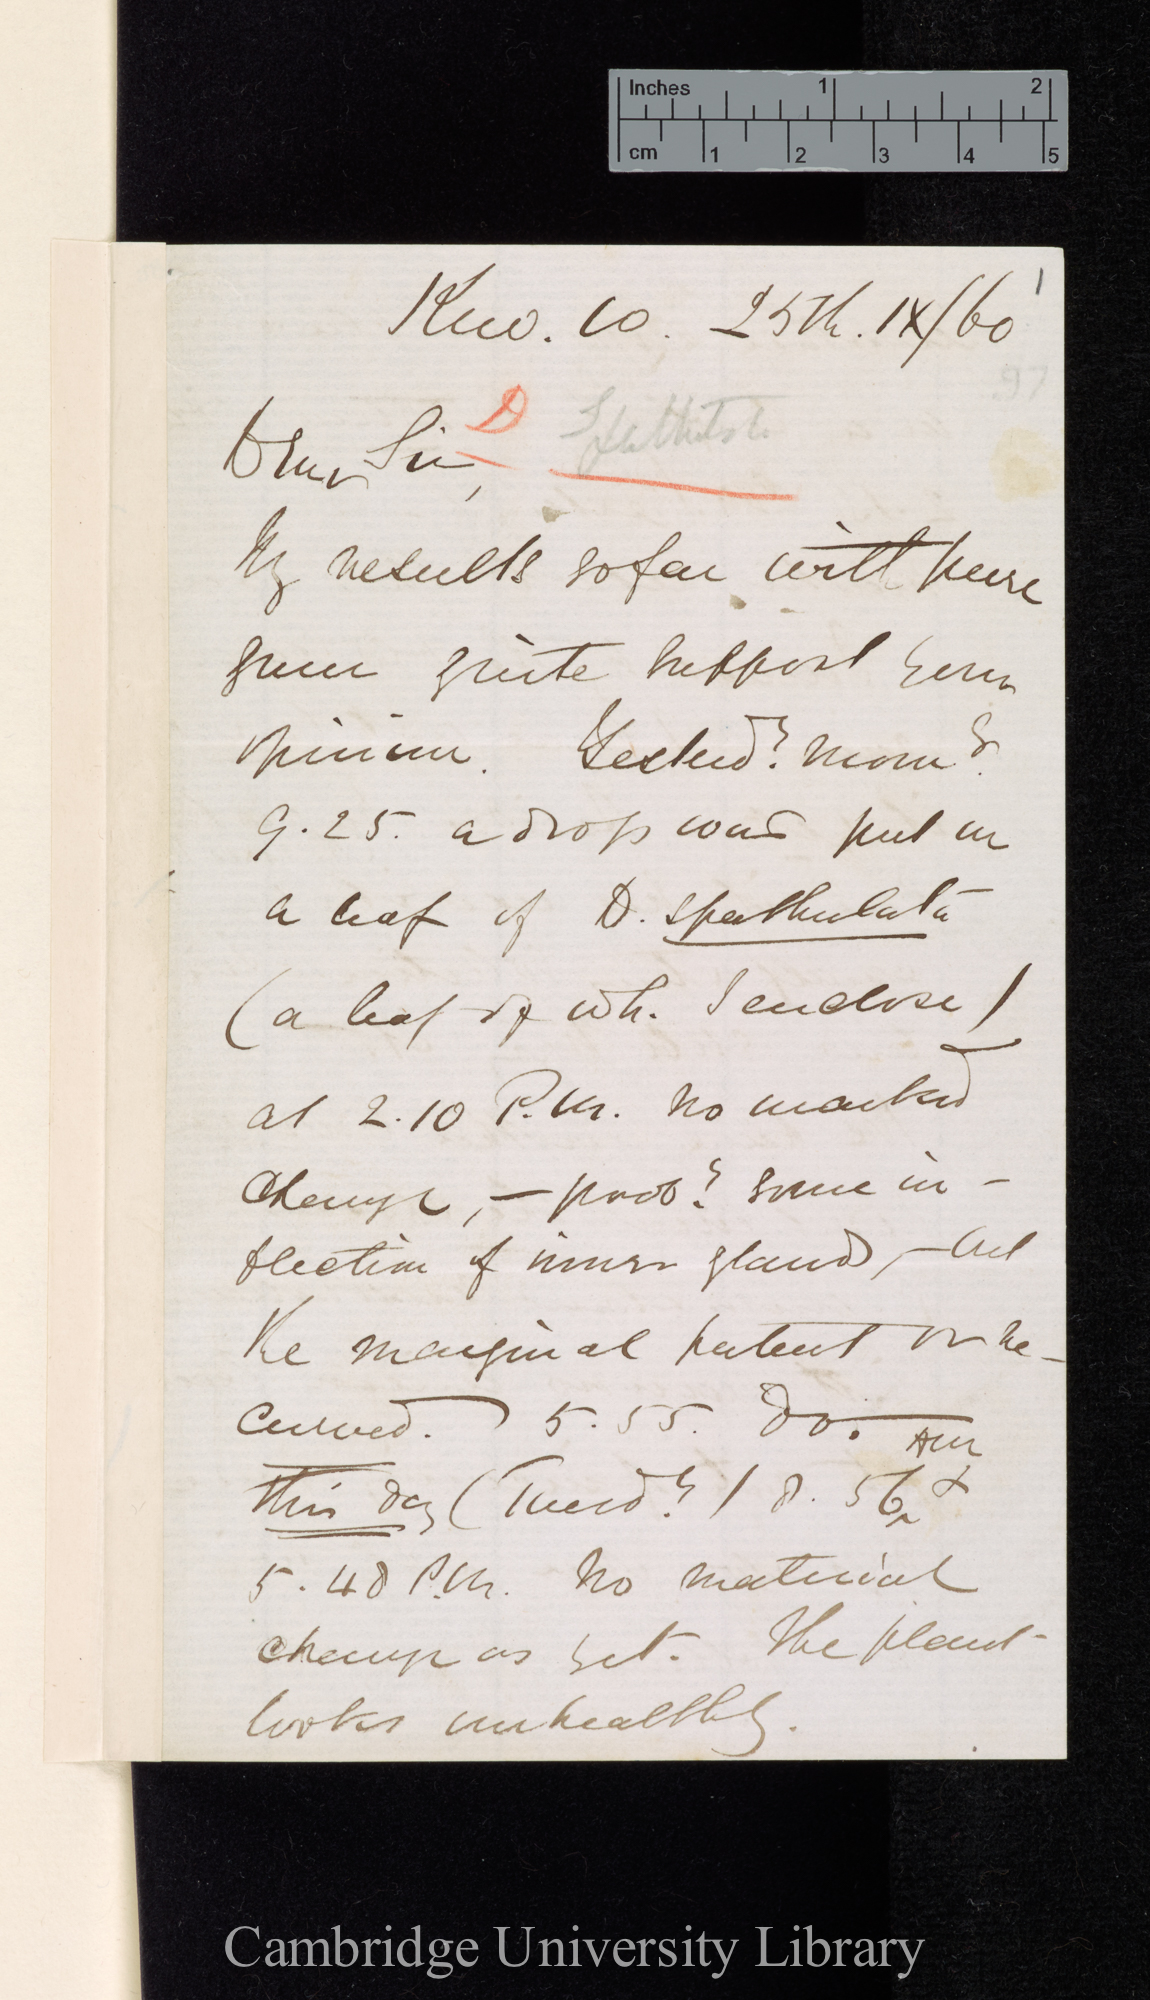 Inches 1 2
cm 1 2 3 4 5
1
Kew. W. 25th. IX/60
97
D Spathulata
Dear Sir,
My results so far with pure
gum quite support your
opinion. Yesterdy. morng.
9.25. a drop was put on
a leaf of D. spathulata
(a leaf of wh. I enclose)
at 2.10 P.M. no marked
change, — proby. some in-
flection of inner glands, — but
the marginal patent or re-
curved. 5.55. Do.
AM
this day (Tuesdy.) 8.56 &
5.48 P.M. No material
change as yet. The plant
looks unhealthy.
Cambridge University Library